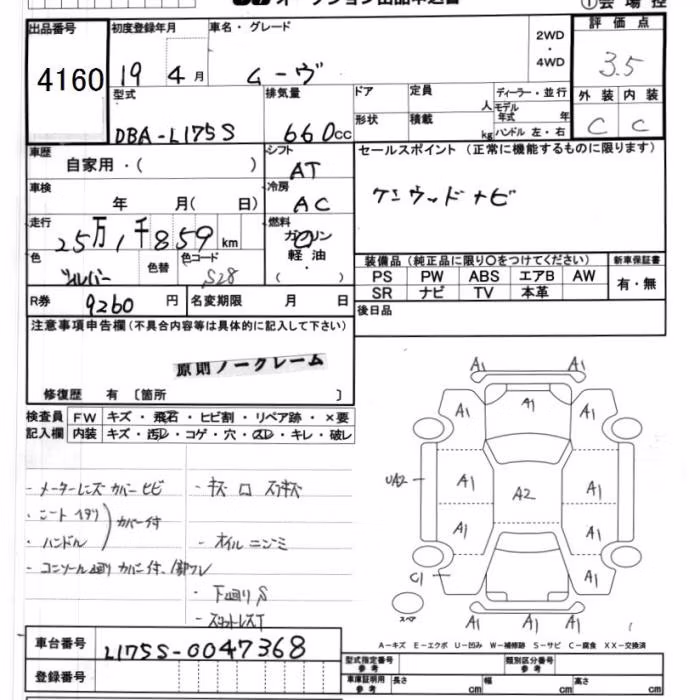 オークション出品申込書 ①会場控
出品番号 初度登録年月 車名・グレード 2WD・4WD 評価点
4160 19年 4月 ムーヴ 3.5
型式 排気量 ドア 定員 人 ディーラー・並行 外装 内装
DBA-L175S 660cc 形状 積載 kg モデル年式 年 ハンドル 左・右 C C
車歴 自家用・( ) シフト AT セールスポイント (正常に機能するものに限ります)
車検 年 月( 日) 冷房 AC ケンウッドナビ
走行 25万1千859km 燃料 ガソリン 軽油・( )
色 シルバー 色替 色コード S28
装備品 (純正品に限り○をつけてください) 新車保証書
PS PW ABS エアB AW 有・無
SR ナビ TV 本革
R券 9260円 名変期限 月 日 後日品
注意事項申告欄(不具合内容等は具体的に記入して下さい)
原則ノークレーム
修復歴 有 〔箇所 〕
検査員記入欄 FW キズ・飛石・ヒビ割・リペア跡・×要
内装 キズ・汚レ・コゲ・穴・スレ・キレ・破レ
- メーターレンズ カバー ヒビ
・シート ヘタリ カバー付
・ハンドル
- コンソール廻り カバー付、1部ワレ
- キズ 口 スリキズ
- オイル ニジミ
・下廻り S
- スタットレスT
A1 A1
A1 A1 A1
UA2 A1 A2 A1
A1 A1
C1 A1
スペア A1 A1 A1
A-キズ E-エクボ U-凹み W-補修跡 S-サビ C-腐食 XX-交換済
車台番号 L175S-0047368
登録番号
型式指定番号 参考 類別区分番号 参考
車庫証明用 参考 長さ cm 幅 cm 高さ cm